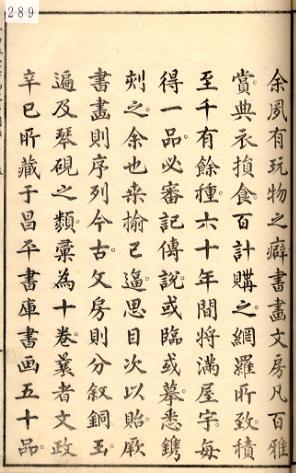 289
余夙有玩物之癖書畫文房凡百雅
賞典衣損食百計購之網羅所致積
至千有餘種六十年間將滿屋宇每
得一品必審記傳說或臨或摹悉鐫
刺之余也桒榆已逼思目次以貽厥
書畫則序列今古文房則分叙銅玉
遍及琴硯之類彙為十卷曩者文政
辛巳所藏于昌平書庫書画五十品